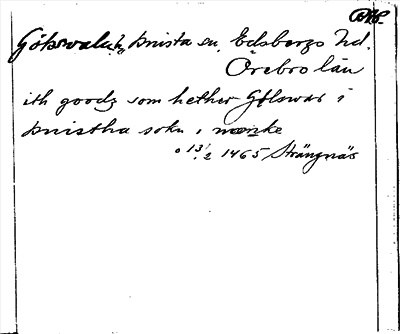 RAP.
Götsvalu, Knista sn, Edsbergs hd.
Örebro län
ith goodz som hether Gøtswar i
knistha sokn i nærike
o 13/2 1465 Strängnäs